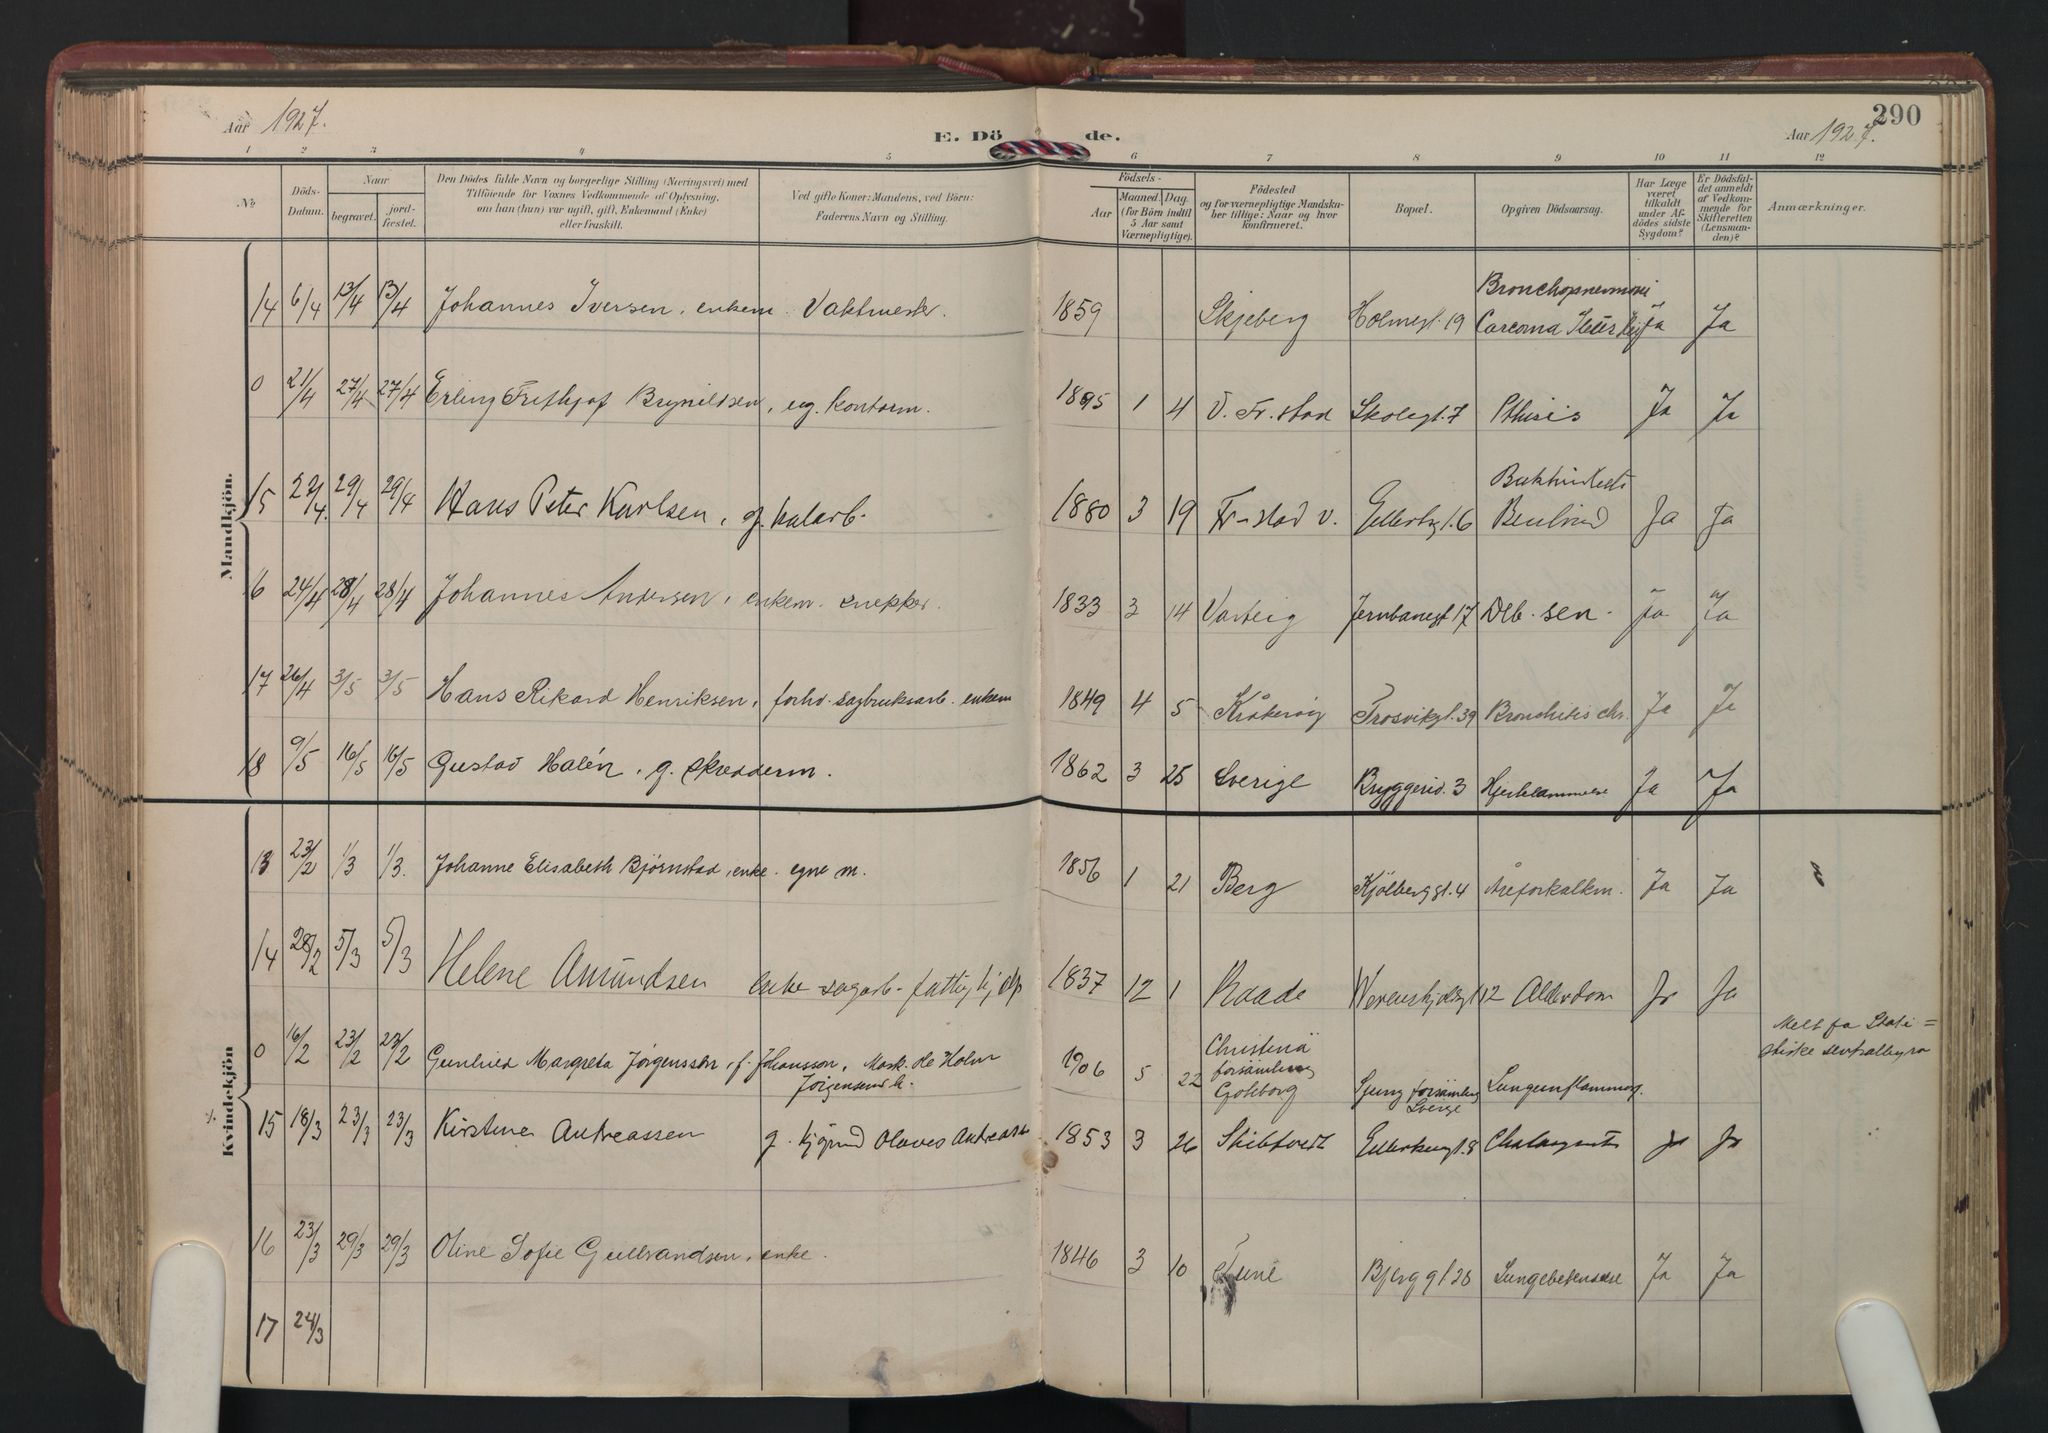 Aar 1927.
E. Dö de.
290
Aar 1927.
1 2 3 4 5 6 7 8 9 10 11 12
No
Döds-Datum.
Naar
begravet.
jord-fæstet.
Den Dödes fulde Navn og borgerlige Stilling (Næringsvei) med
Tilföiende for Voxnes Vedkommende af Oplysning,
om han (hun) var ugift, gift, Enkemand (Enke)
eller fraskilt.
Ved gifte Koner: Mandens, ved Börn:
Faderens Navn og Stilling.
Födsels-
Aar
Maaned. Dag.
(for Börn indtil
5 Aar samt
Værnepligtige).
Födested
og for værnepligtige Mandska-
ber tillige: Naar og hvor
konfirmeret.
Bopæl.
Opgiven Dödsaarsag.
Har Læge
været
tilkaldt
under Af-
dödes sidste
Sygdom?
Er Dödsfal-
det anmeldt
af Vedkom-
mende for
Skifteretten
(Lensman-
den)?
Anmærkninger.
Mandkjön.
14 6/4 13/4 13/4 Johannes Iversen, enkem. Vaktmester. 1859 Skjeberg Holmegt. 19 Bronchopneumoni Ja Ja
0 21/4 27/4 27/4 Erling Frithjof Brynildsen, ug. kontorm. 1895 1 4 V. Fr.stad Skolegt. 7 Pthisis Ja Ja
15 27/4 29/4 29/4 Hans Peter Karlsen, g. 1880 3 19 Fr-stad V. 6 Ja Ja
6 24/4 28/4 28/4 Johannes Andersen, enkem. snekker. 1833 3 14 Varteig Jernbanegt 17 Deb. sen. Ja Ja
17 26/4 3/5 3/5 Hans Rikard Henriksen, forhv. sagbruksarb. enkem 1849 4 5 Kråkerøy Trosvikgt. 39 Bronchitis chr. Ja Ja
18 9/5 16/5 16/5 Gustav Halén, g. skredderm. 1862 3 25 Sverige Bryggeriv. 3 Hjertelammelse Ja Ja
Kvindekjön
13 23/2 1/3 1/3. Johanne Elisabeth Bjørnstad, enke. egne m. 1856 1 21 Berg Kjölberggt. 4 Åreforkalkn. Ja Ja
14 28/2 5/3 5/3 Helene Amundsen enke sagarb. fattighjelp 1837 12 1 Raade Werenskjoldgt 12 Alderdom Ja Ja
0 16/2 23/2 23/2 Gunhild Margreta Jørgenssen, f. Johansson, Mask. Holm Jørgensens h. 1906 5 22 Christinä församling Göteborg Ljung församling Sverige Lungeinflammasj. Melt fa Stati=
stiske sentralbyrå
15 18/3 23/3 23/3 Kirstine Andreassen g. Olaves Andreass 1853 3 26 Skibtvedt 8 Ja Ja
16 23/3 29/3 29/3 Oline Sofie Gulbrandsen, enke. 1846 3 10 Tune Bjerggt 28 Lungebetendelse Ja Ja
17 24/3